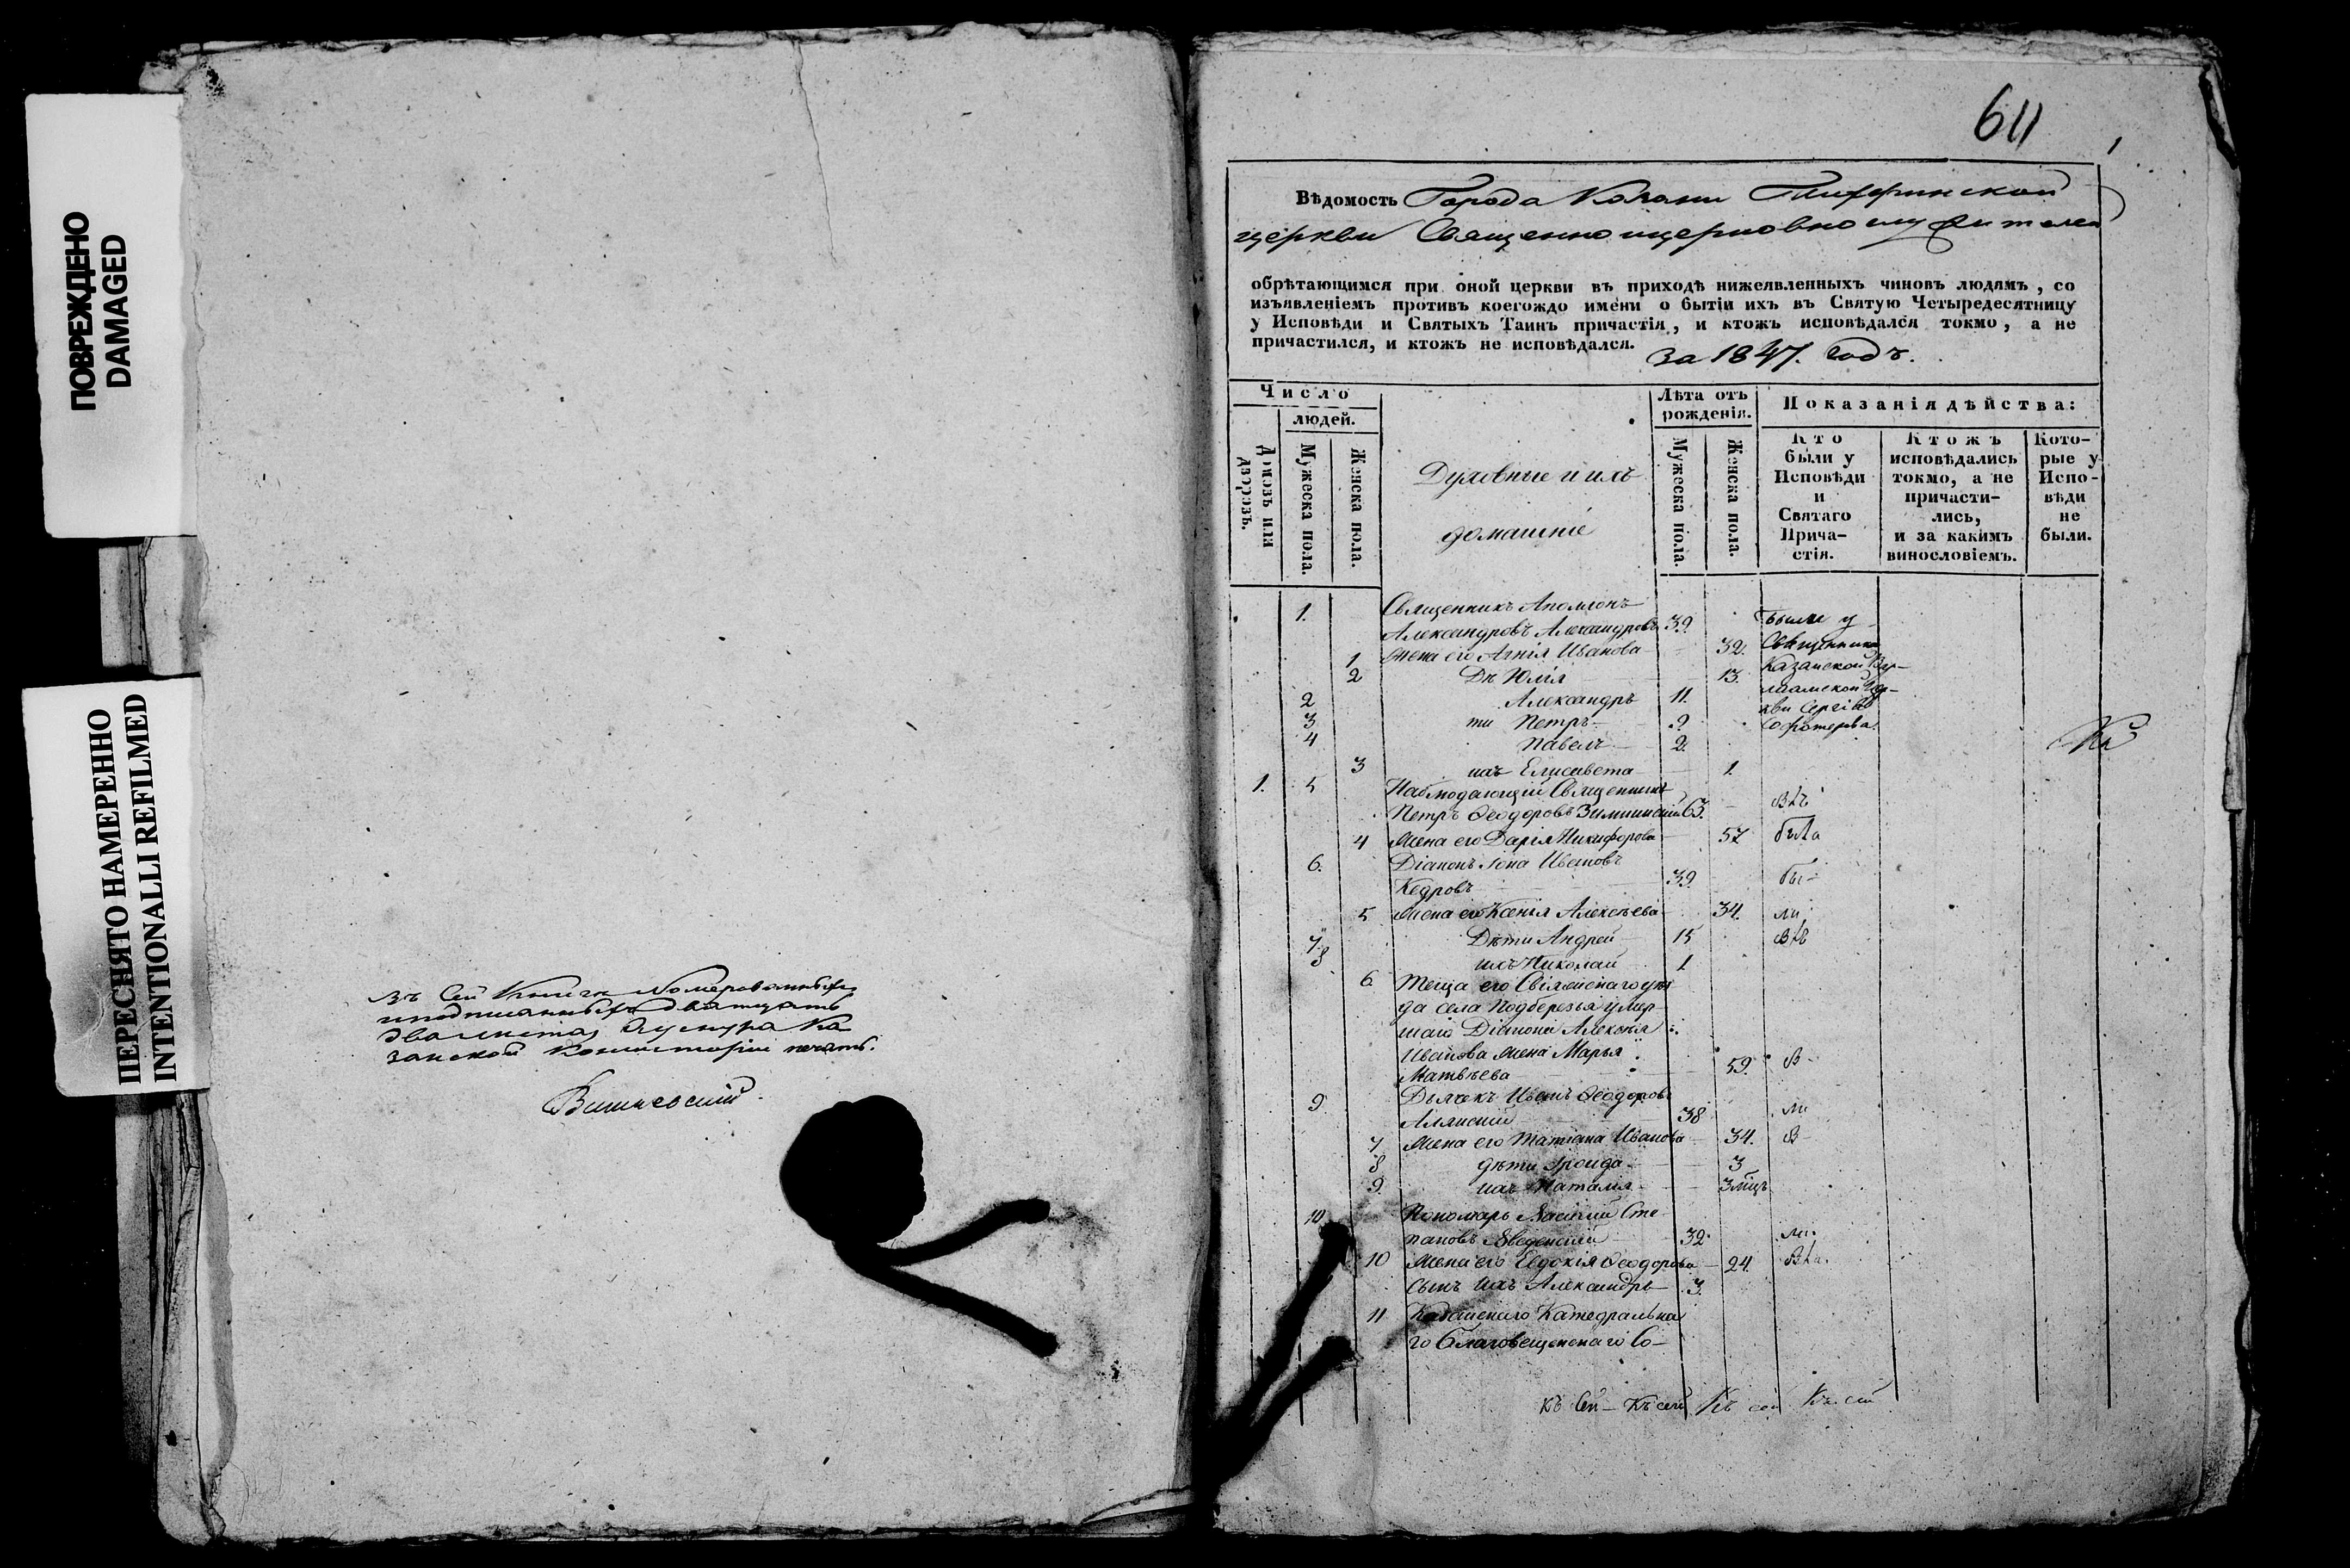 ПОВРЕЖДЕНО
DAMAGED
ПЕРЕСНЯТО НАМЕРЕННО
INTENTIONALLI REFILMED
въ Сей Книгѣ Номерованныхъ
двадцать
два листа, Казанской Консисторіи печать.
611
1
Вѣдомость Города Казани Тихвинской
церкви Священноицерковнослужителей
обрѣтающимся при оной церкви въ приходѣ нижеявленныхъ чиновъ людямъ, со
изъявленіемъ противъ коегождо имени о бытіи ихъ въ Святую Четыредесятницу
у Исповѣди и Святыхъ Таинъ причастія, и ктожъ исповѣдался токмо, а не
причастился, и ктожъ не исповѣдался. За 1847. годъ.
Число
людей.
Домовъ или дворовъ.
Мужеска пола.
Женска пола.
Духовные и ихъ
домашніе
Лѣта отъ
рожденія.
Мужеска пола.
Женска пола.
Показанія дѣйства:
Кто
были у
Исповѣди
и
Святаго
Прича-
стія.
Ктожъ
исповѣдались
токмо, а не
причасти-
лись,
и за какимъ
винословіемъ.
Кото-
рые у
Испо-
вѣди
не
были.
1. Священникъ Аполлонъ
Александровъ Александровъ 39. Были у
1 Жена его Агнія Иванова 32. Священника
2 Дѣ Юлія 13. Казанской Вар-
2 Александръ 11. лаамской Цер-
3 ти Петръ 9 кви Сергія
4 Павелъ 2.
3 ихъ Елисавета 1.
1. 5 Наблюдающій Священникъ
Петръ Ѳеодоровъ 63.
4 Жена его Дарія Никифорова 57
6. Діаконъ Іона Ивановъ
Кедровъ 39.
5 Жена его Ксенія Алексѣева 34. ли
7 Дѣти Андрей 15
8 ихъ Николай 1
6 Теща его Свіяжскаго уѣз
да села Подберезья умер
шаго Діакона Алексѣя
Иванова жена Марья
Матвѣева 59. в
9 Дьячекъ Иванъ Ѳеодоровъ
38 ли
7 Жена его Татіана Иванова 34. в
8 дѣти Іраида 3
9. ихъ Наталія 3 мѣц
10 Пономарь Василій Сте
пановъ Введенскій 32 ли
10 Жена его Евдокія Ѳеодорова 24.
Сынъ ихъ Александръ 3.
11 Казанскаго Катедрально
го Благовещенскаго Со-
Къ Сей Къ сей Къ сей Къ сей